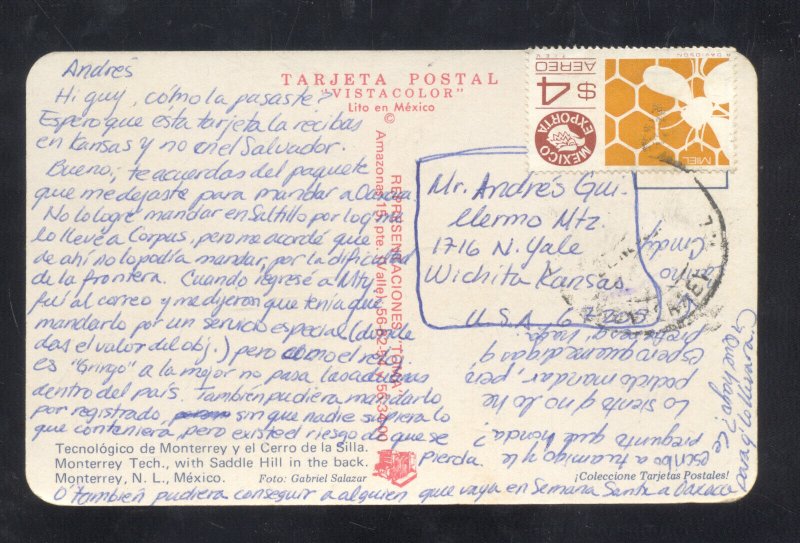 TARJETA POSTAL
"VISTACOLOR"
Lito en México
©
Andrés
Hi guy, cómo la pasaste?
Espero que esta tarjeta la recibas
en Kansas y no en el Salvador.
Bueno, te acuerdas del paquete
que me dejaste para mandar a Oaxaca.
No lo logré mandar en Saltillo por lo q me
lo llevé a Corpus, pero me acordé que
de ahí no lo podía mandar, por la dificultad
de la frontera. Cuando regresé a Mty
fui al correo y me dijeron que tenía que
mandarlo por un servicio especial (donde
das el valor del obj.) pero como el reloj
es "Gringo" a lo mejor no pasa las aduanas
dentro del país. También pudiera mandarlo
por registrado, sin que nadie supiera lo
que contenía, pero existe el riesgo de que se
pierda.
O también pudiera conseguir a alguien que vaya en Semana Santa a Oaxaca
para q lo llevara?
Que hago? ¿Le
escribo a tu amigo y le
pregunto qué honda?
Lo siento q no lo he
podido mandar, pero
Espero que me digas q
Cindy
Mr. Andrés Gui-
llermo Mtz
1716 N. Yale
Wichita Kansas.
U.S.A.
REPRESENTACIONES
Amazonas
Tecnológico de Monterrey y el Cerro de la Silla.
Monterrey Tech., with Saddle Hill in the back.
Monterrey, N. L., México.
Foto: Gabriel Salazar
¡Coleccione Tarjetas Postales!
$4
AEREO
MEXICO
EXPORTA
MIEL